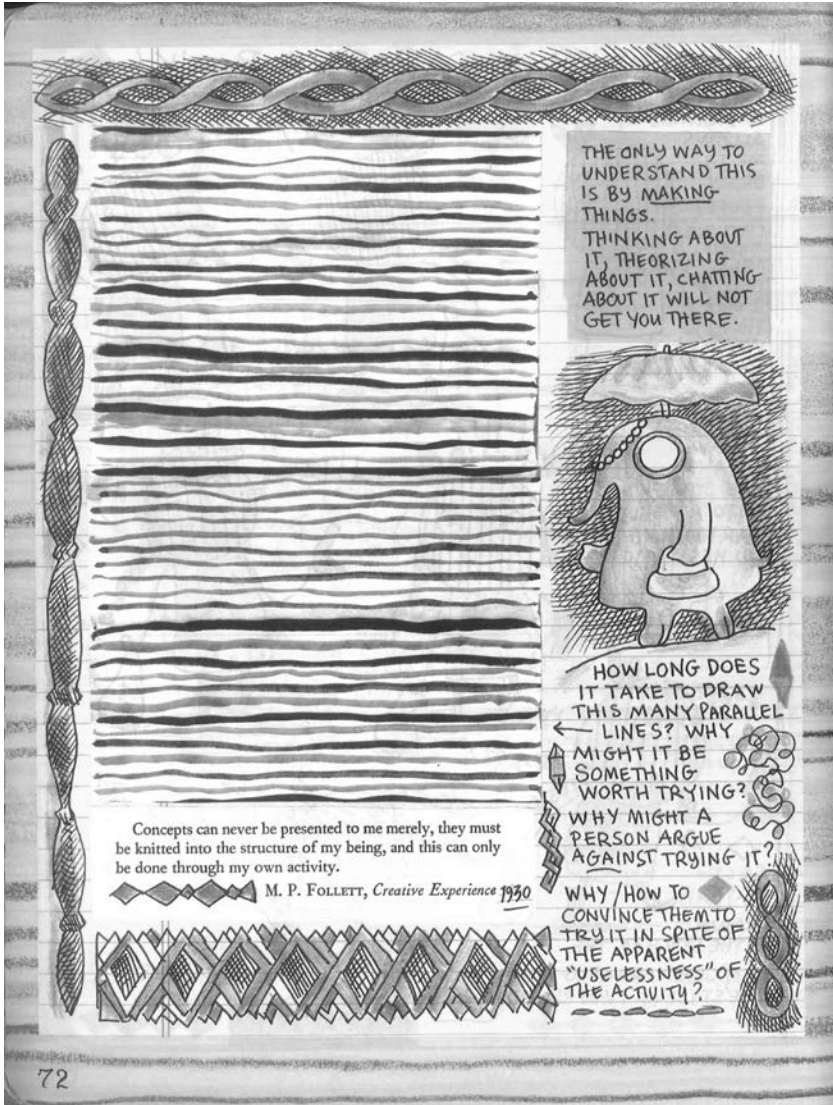 THE ONLY WAY TO
UNDERSTAND THIS
IS BY MAKING
THINGS.
THINKING ABOUT
IT, THEORIZING
ABOUT IT, CHATTING
ABOUT IT WILL NOT
GET YOU THERE.
HOW LONG DOES
IT TAKE TO DRAW
THIS MANY PARALLEL
← LINES? WHY
MIGHT IT BE
SOMETHING
WORTH TRYING?
WHY MIGHT A
PERSON ARGUE
AGAINST TRYING IT?
WHY/HOW TO
CONVINCE THEM TO
TRY IT IN SPITE OF
THE APPARENT
"USELESSNESS" OF
THE ACTIVITY?
Concepts can never be presented to me merely, they must
be knitted into the structure of my being, and this can only
be done through my own activity.
M. P. FOLLETT, Creative Experience 1930
72